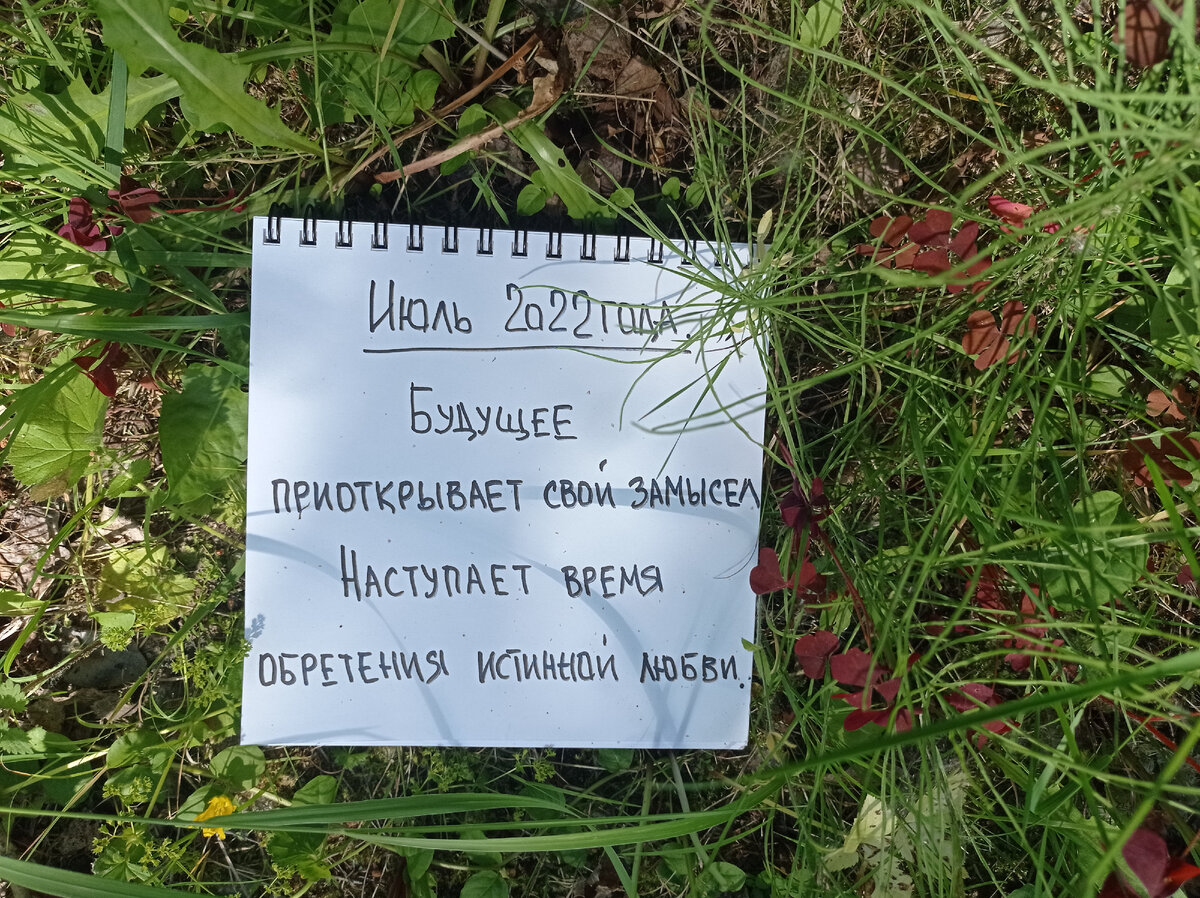 Июль 2022 года.
Будущее
приоткрывает свой замысел
Наступает время
обретения истинной любви.